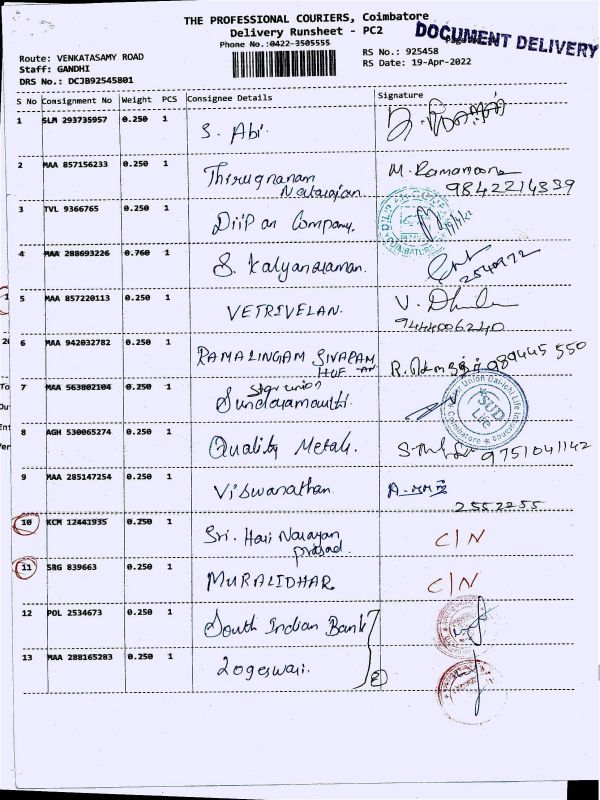 THE PROFESSIONAL COURIERS, Coimbatore
Delivery Runsheet - PC2
DOCUMENT DELIVERY
Phone No.:0422-3505555
Route: VENKATASAMY ROAD
RS No.: 925458
Staff: GANDHI
RS Date: 19-Apr-2022
DRS No.: DCJB92545801
S No Consignment No Weight PCS Consignee Details Signature
1 SLM 293735957 0.250 1
S. Abi.
2 MAA 857156233 0.250 1 M. Ramamoon
Thirugnanam 9842214339
Natarajan
3 TVL 9366765 0.250 1
Diipan Company.
4 MAA 288693226 0.760 1
S. Kalyanaraman. 2540972
5 MAA 857220113 0.250 1 V.
VETRIVELAN. 9444006240
6 MAA 942032782 0.250 1
RAMALINGAM SIVARAM R. 989445 550
HUF
7 MAA 563802104 0.250 1 Star union
Sundaramoorthi
Union Dai-ichi Life
SUD
Life
Coimbatore
8 AGH 530065274 0.250 1
Quality Metals. 9751041142
9 MAA 285147254 0.250 1
Viswanathan 2552255
10 KCM 12441935 0.250 1
Sri. Hari Narayan C/N
prasad.
11 SRG 839663 0.250 1
MURALIDHAR C/N
12 POL 2534673 0.250 1
South Indian Bank
13 MAA 288165283 0.250 1
Logeswari. 2